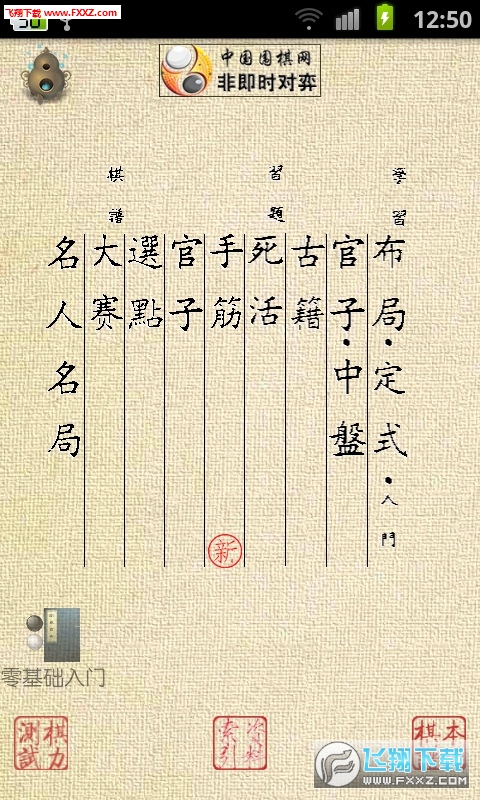 飞翔下载
www.FXXZ.com
12:50
中国围棋网
非即时对弈
學習
布局·定式·入門
官子·中盤
古籍
習題
死活
手筋
新
官子
選點
棋譜
大賽
名人名局
零基础入门
棋力測試
資料索引
棋本
飞翔下载
WWW.FXXZ.COM